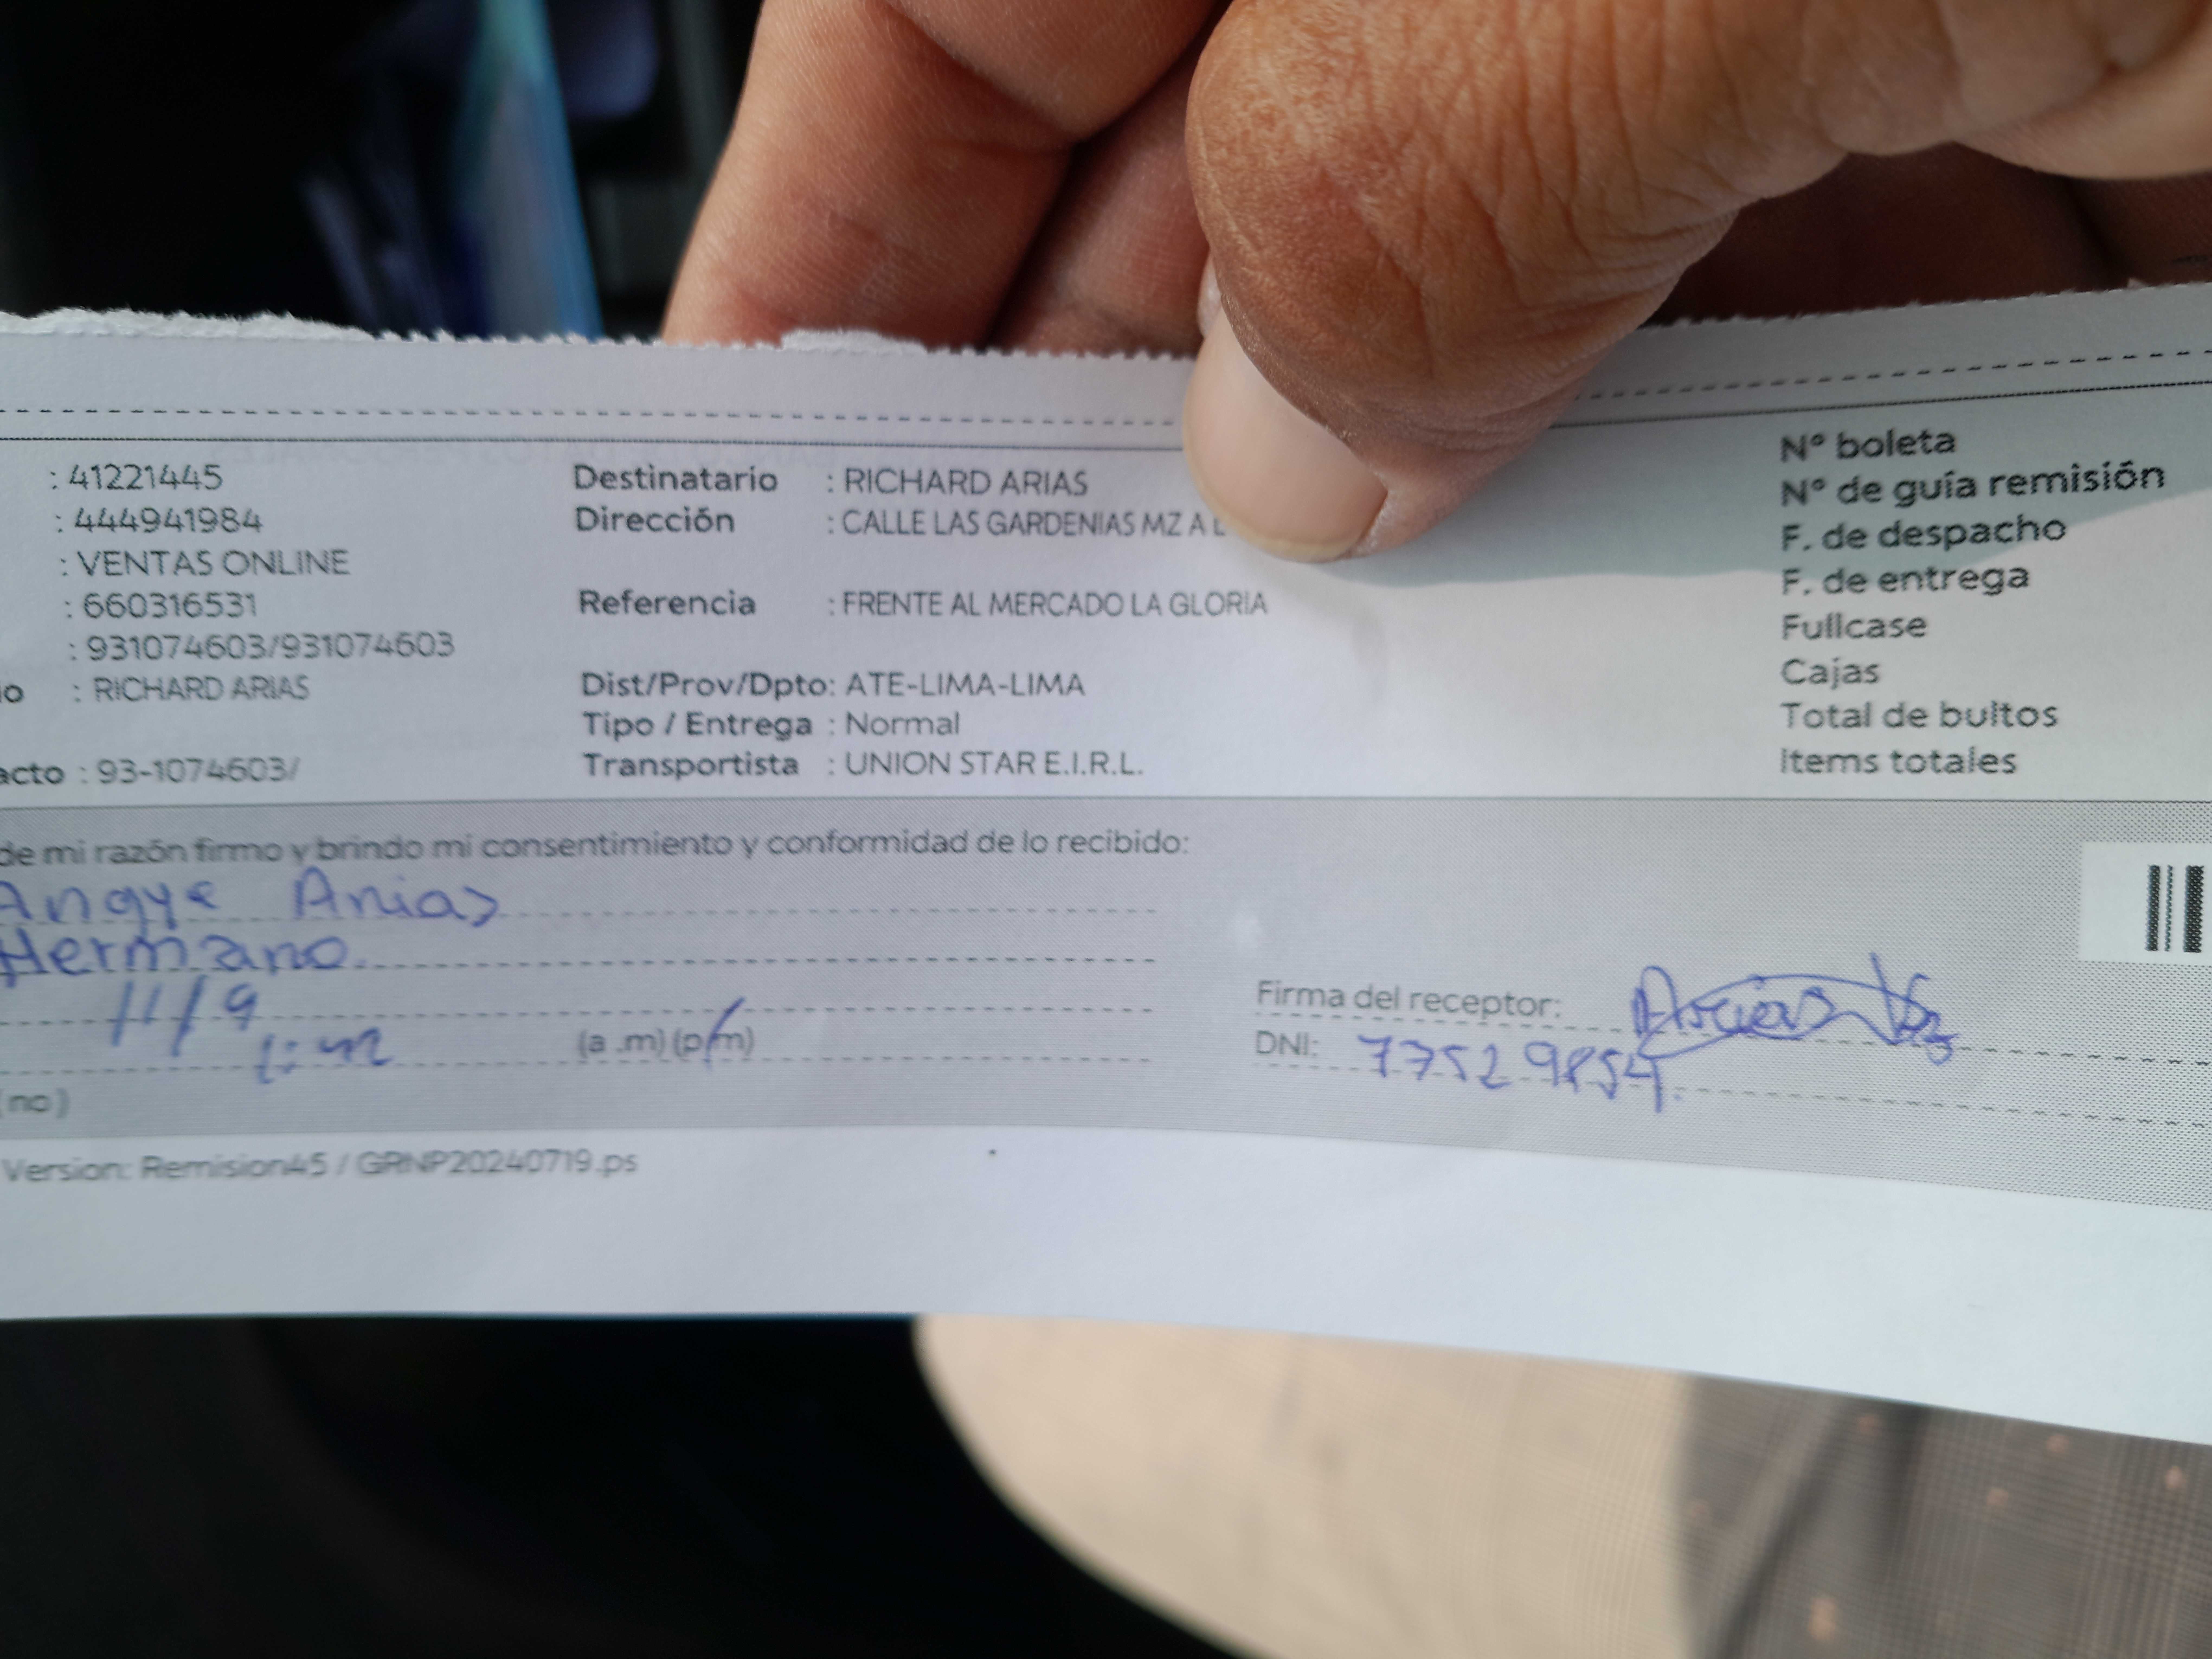 : 41221445
: 444941984
: VENTAS ONLINE
: 660316531
: 931074603/931074603
io : RICHARD ARIAS
acto : 93-1074603/
Destinatario : RICHARD ARIAS
Dirección : CALLE LAS GARDENIAS MZ A
Referencia : FRENTE AL MERCADO LA GLORIA
Dist/Prov/Dpto: ATE-LIMA-LIMA
Tipo / Entrega : Normal
Transportista : UNION STAR E.I.R.L.
N° boleta
N° de guía remisión
F. de despacho
F. de entrega
Fullcase
Cajas
Total de bultos
Items totales
de mi razón firmo y brindo mi consentimiento y conformidad de lo recibido:
Angye Arias
Hermano
11/9
1:42 (a .m) (p.m)
(no)
Firma del receptor: Arias
DNI: 77529854
Version: Remision45 / GRNP20240719.ps